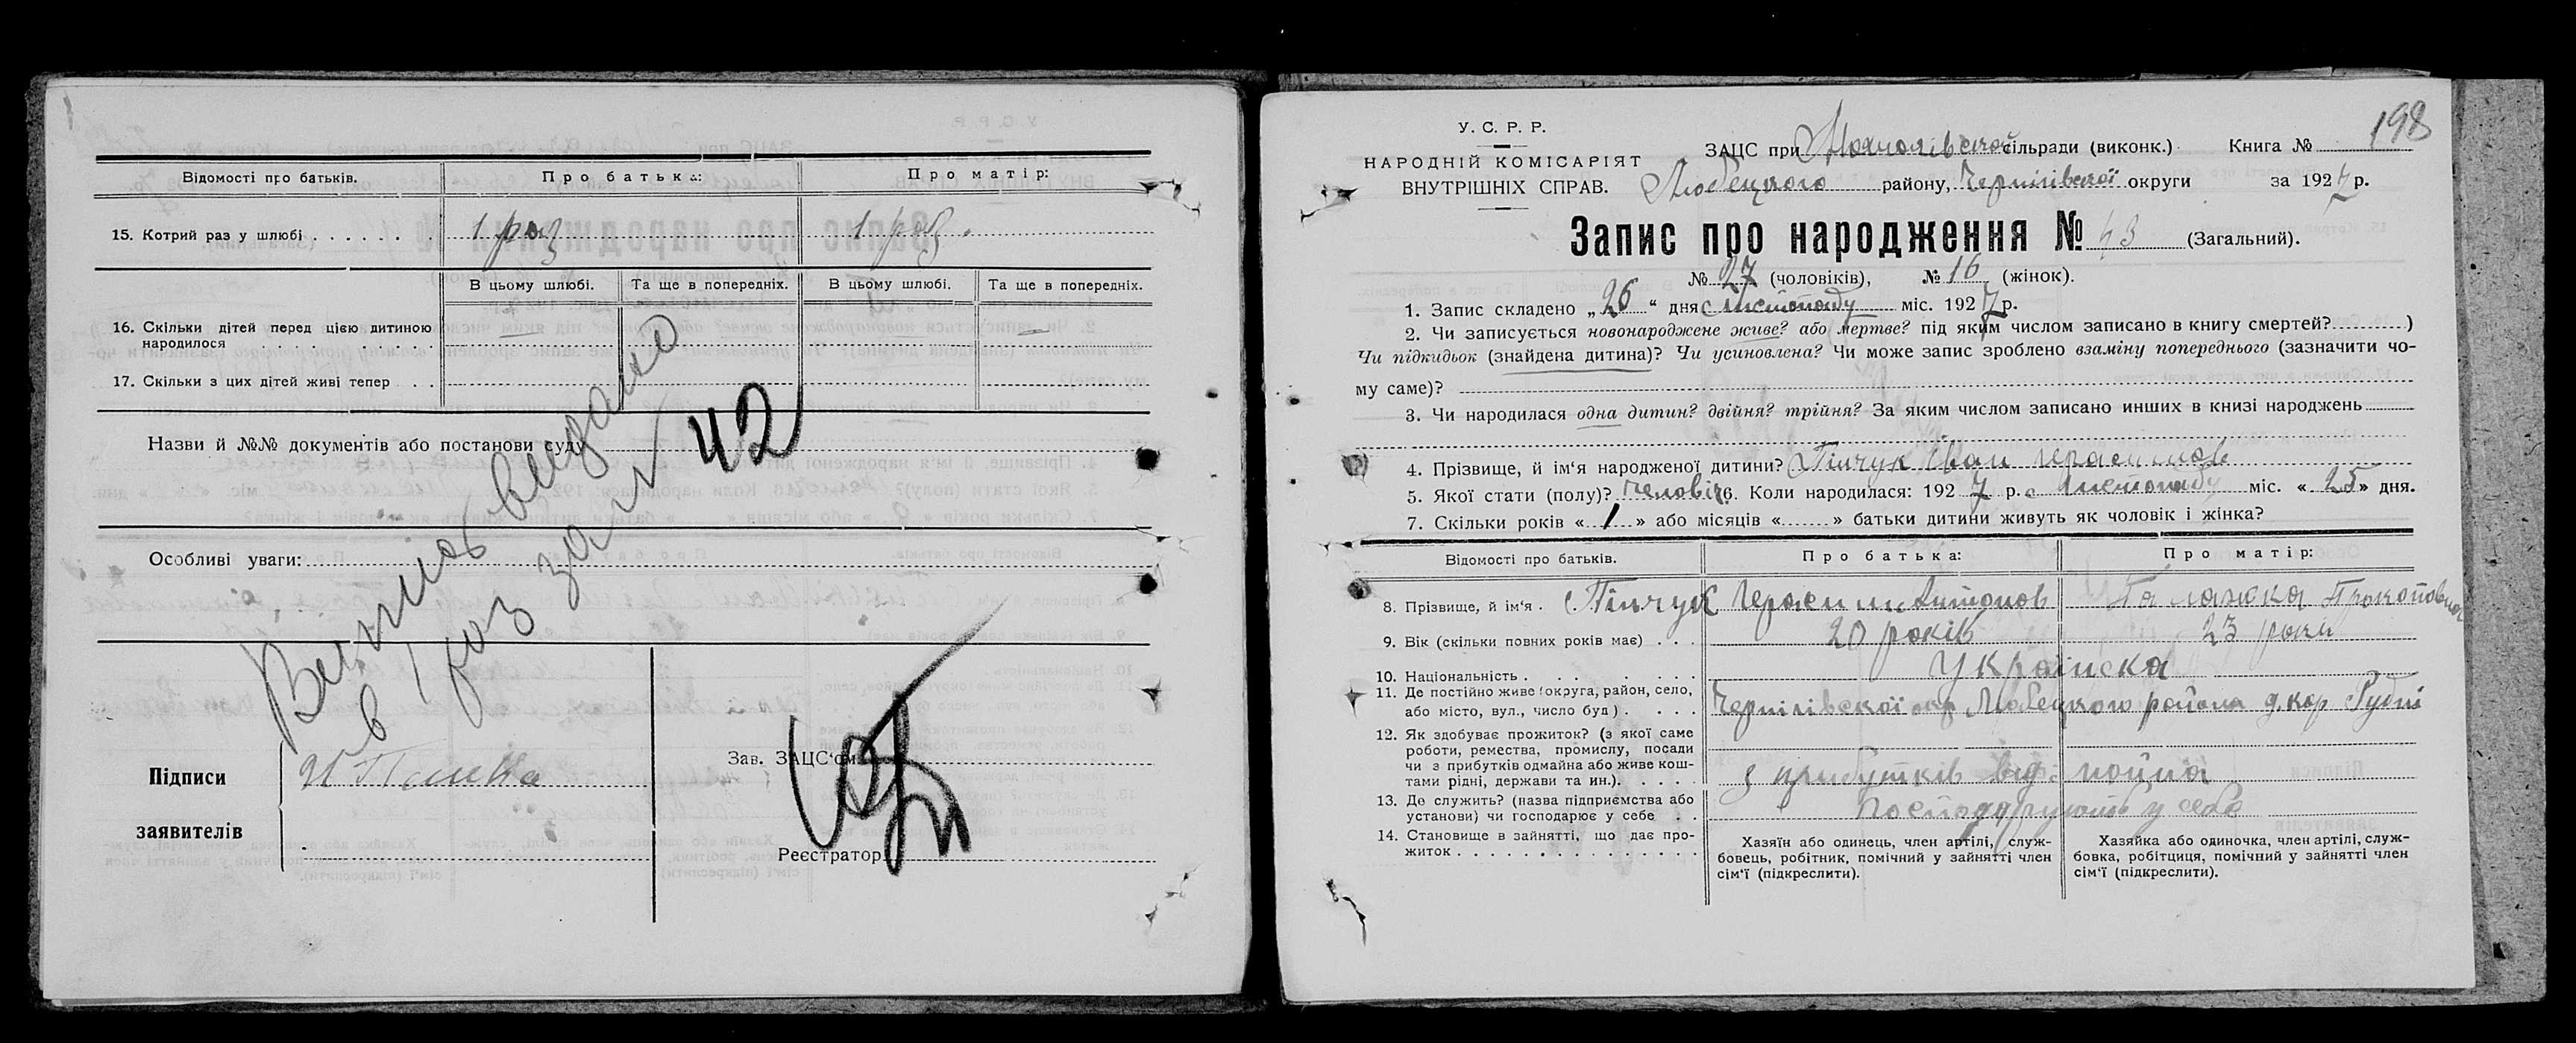 Відомості про батьків.
Про батька:
Про матір:
15. Котрий раз у шлюбі . . . . . . .
1 раз
1 раз.
В цьому шлюбі.
Та ще в попередніх.
В цьому шлюбі.
Та ще в попередніх.
16. Скільки дітей перед цією дитиною
народилося . . . . . . . . . .
—
—
17. Скільки з цих дітей живі тепер . .
Назви й №№ документів або постанови суду
Особливі уваги:
Витпис видано
в 1 раз за № 42
Підписи
заявителів
Зав. ЗАЦС'ом
Реєстратор
198
У. С. Р. Р.
НАРОДНІЙ КОМІСАРІЯТ
ВНУТРІШНІХ СПРАВ.
ЗАЦС при сільради (виконк.) Книга №
Любецкого району, Чернігівської округи за 1927 р.
Запис про народження № 43 (Загальний).
№ 27 (чоловіків), № 16 (жінок).
1. Запис складено „26“ дня листопаду міс. 1927 р.
2. Чи записується новонароджене живе? або мертве? під яким числом записано в книгу смертей? )
Чи підкидьок (знайдена дитина)? Чи усиновлена? Чи може запис зроблено взаміну попереднього (зазначити чо-
му саме)?
3. Чи народилася одна дитин? двійня? трійня? За яким числом записано инших в книзі народжень
4. Прізвище, й ім'я народженої дитини? Пінчук Іван Герасимов
5. Якої стати (полу)? Человіч. 6. Коли народилася: 1927 р. листопаду міс. «25» дня.
7. Скільки років «1» або місяців «......» батьки дитини живуть як чоловік і жінка?
Відомості про батьків.
Про батька:
Про матір:
8. Прізвище, й ім'я . Пінчук Герасим Антонов
Галажка Прокоповна
9. Вік (скільки повних років має) . . .
20 років
23 роки
10. Національність . . . . . .
Українска
11. Де постійно живе (округа, район, село,
або місто, вул., число буд) . . . .
Чернігівскої окр Любецкого района д. кор Рудні
12. Як здобуває прожиток? (з якої саме
роботи, ремества, промислу, посади
чи з прибутків одмайна або живе кош-
тами рідні, держави та ин.). . . . .
з прибутків від
13. До служить? (назва підприємства або
установи) чи господарює у себе . .
господарують у себе
14. Становище в зайнятті, що дає про-
житок . . . . . . . . . . . . . . .
Хазяїн або одинець, член артілі, служ-
бовець, робітник, помічний у зайнятті член
сім'ї (підкреслити).
Хазяйка або одиночка, член артілі, служ-
бовка, робітциця, помічний у зайнятті член
сім'ї (підкреслити).